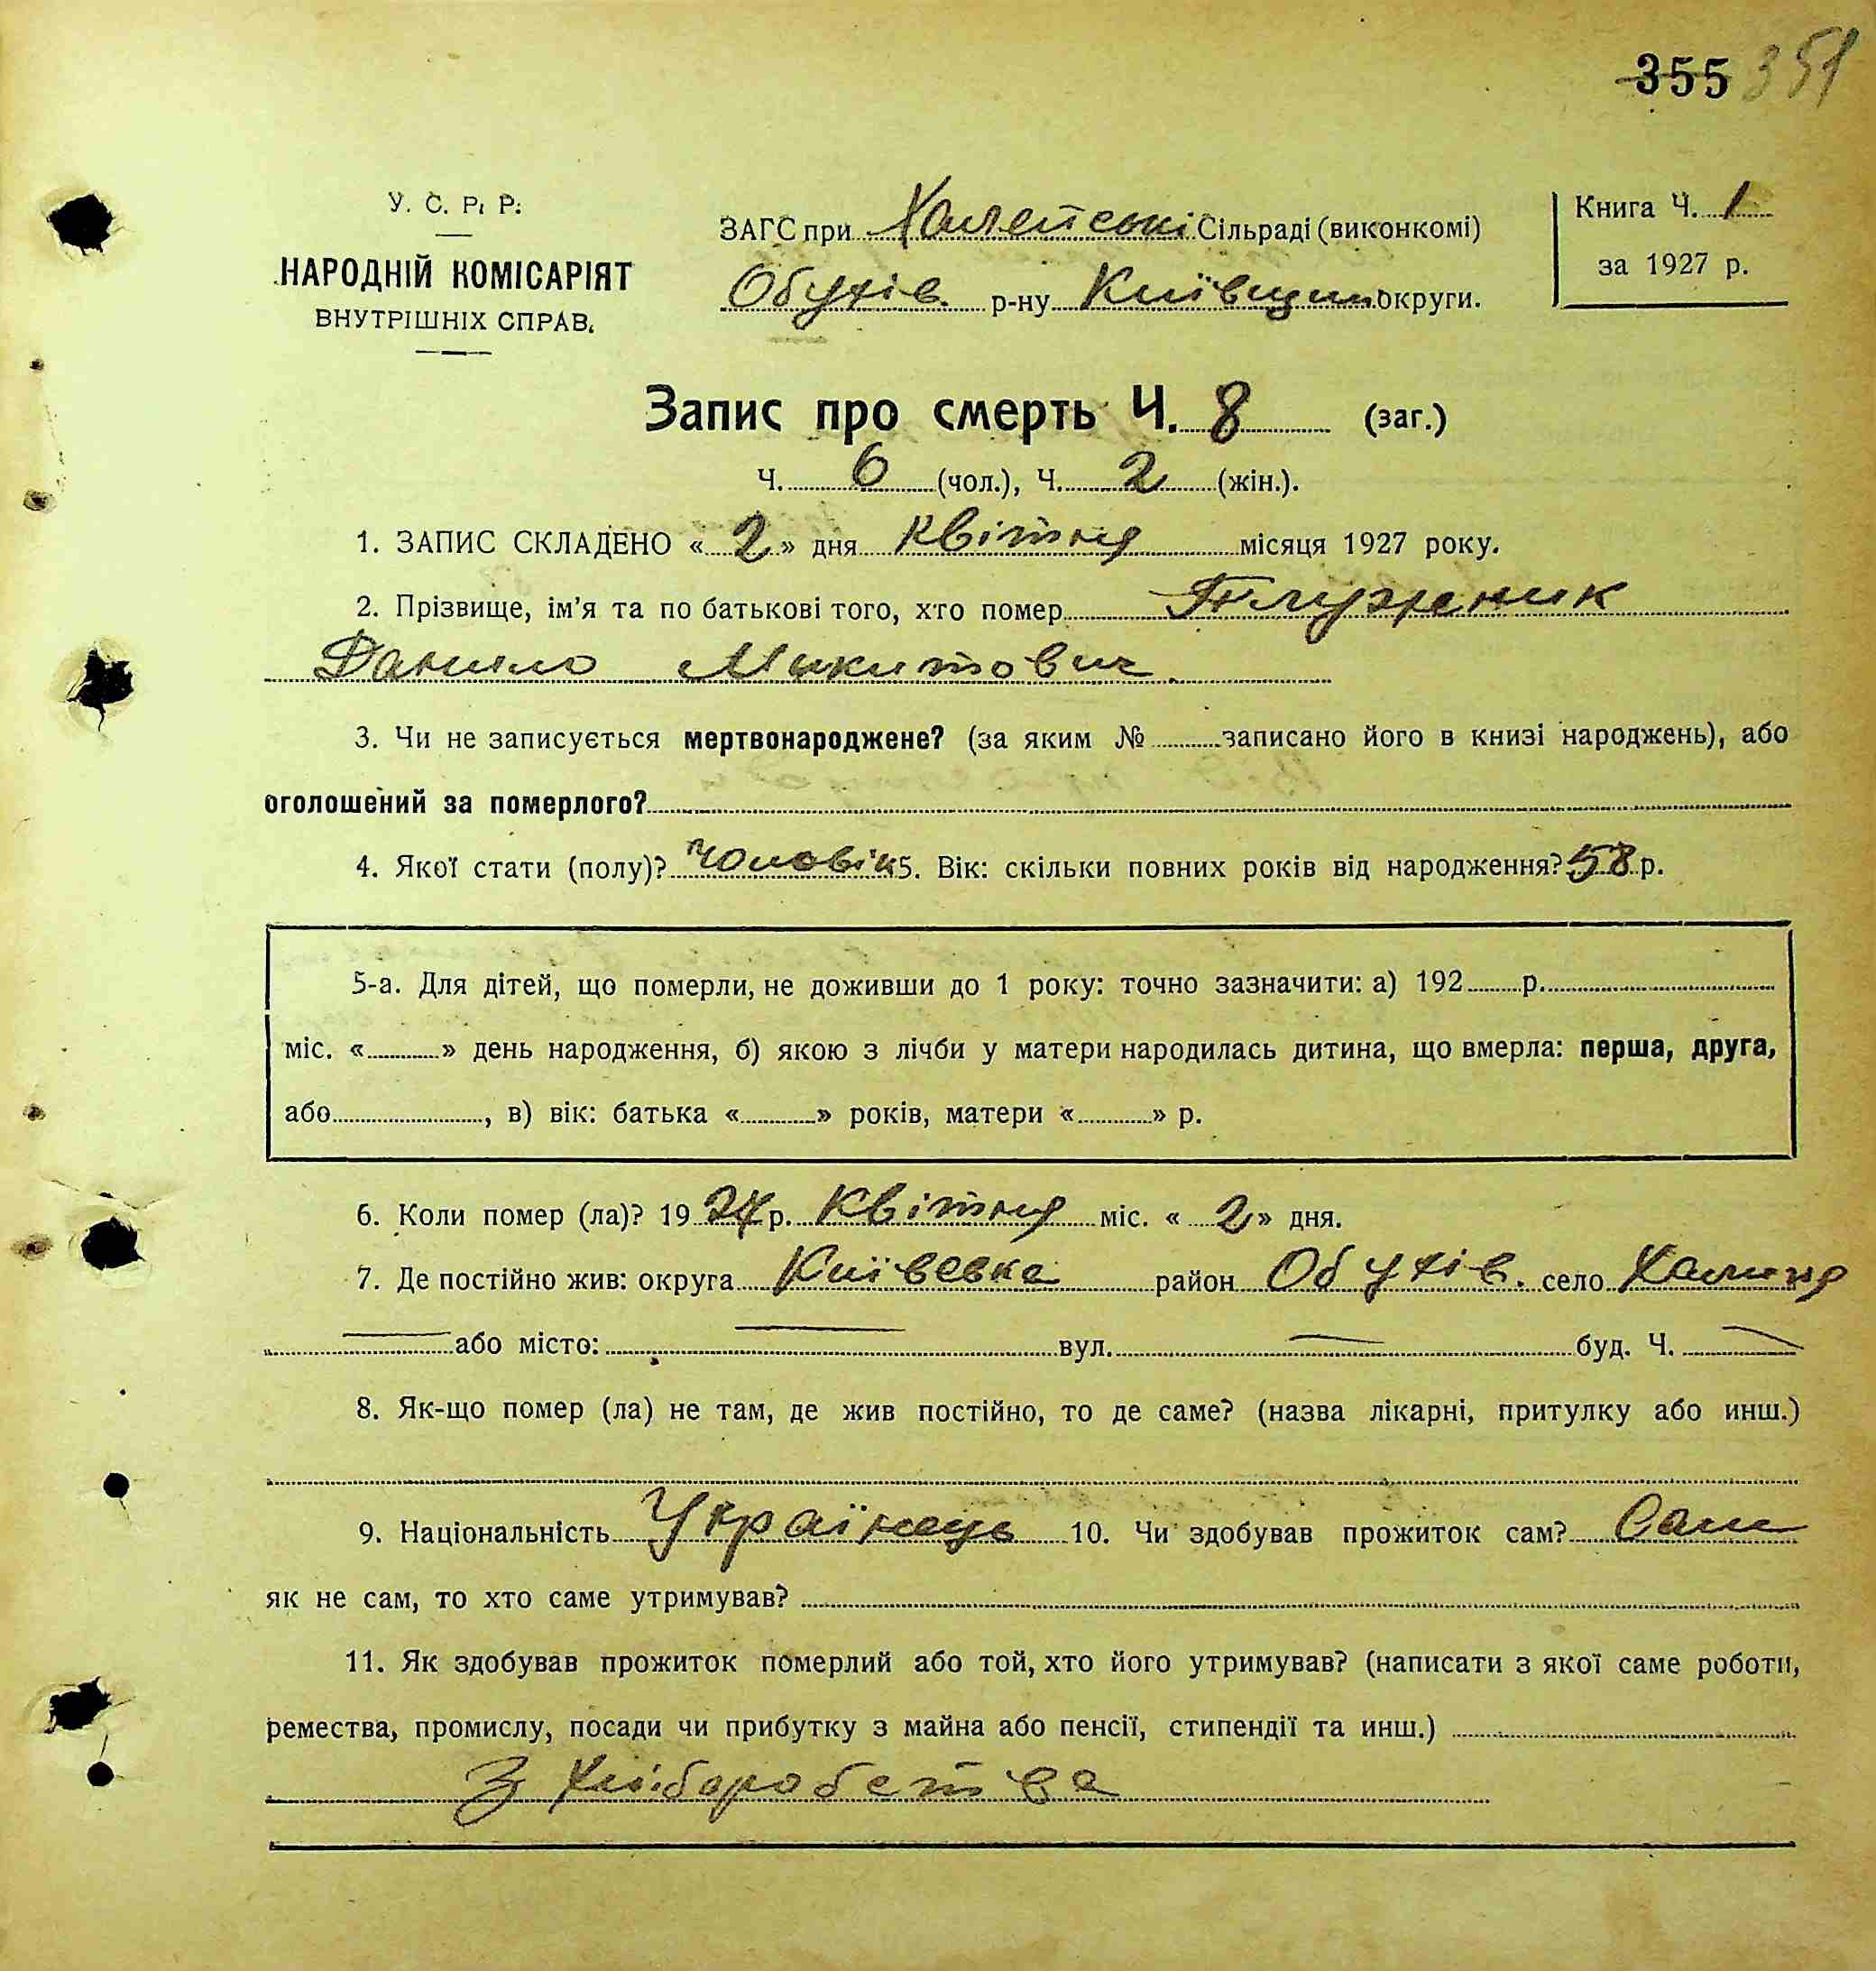 355 351
У. С. Р. Р.
НАРОДНІЙ КОМІСАРІЯТ
ВНУТРІШНІХ СПРАВ.
ЗАГС при Халепські Сільраді (виконкомі)
Обухів. р-ну Київщини округи.
Книга Ч. 1
за 1927 р.
Запис про смерть Ч. 8 (заг.)
Ч. 6 (чол.), Ч. 2 (жін.).
1. ЗАПИС СКЛАДЕНО « 2 » дня квітня місяця 1927 року.
2. Прізвище, ім'я та по батькові того, хто помер Плужник
Данило Микитович
3. Чи не записується мертвонароджене? (за яким № записано його в книзі народжень), або
оголошений за померлого?
4. Якої стати (полу)? Чоловік 5. Вік: скільки повних років від народження? 58 р.
5-а. Для дітей, що померли, не доживши до 1 року: точно зазначити: а) 192 р.
міс. « » день народження, б) якою з лічби у матери народилась дитина, що вмерла: перша, друга,
або , в) вік: батька « » років, матери « » р.
6. Коли помер (ла)? 19 27 р. Квітня міс. « 2 » дня.
7. Де постійно жив: округа Київська район Обухів. село
або місто: вул. буд. Ч.
8. Як-що помер (ла) не там, де жив постійно, то де саме? (назва лікарні, притулку або инш.)
9. Національність Українець 10. Чи здобував прожиток сам? Сам
як не сам, то хто саме утримував?
11. Як здобував прожиток померлий або той, хто його утримував? (написати з якої саме роботи,
ремества, промислу, посади чи прибутку з майна або пенсії, стипендії та инш.)
З Хліборобства